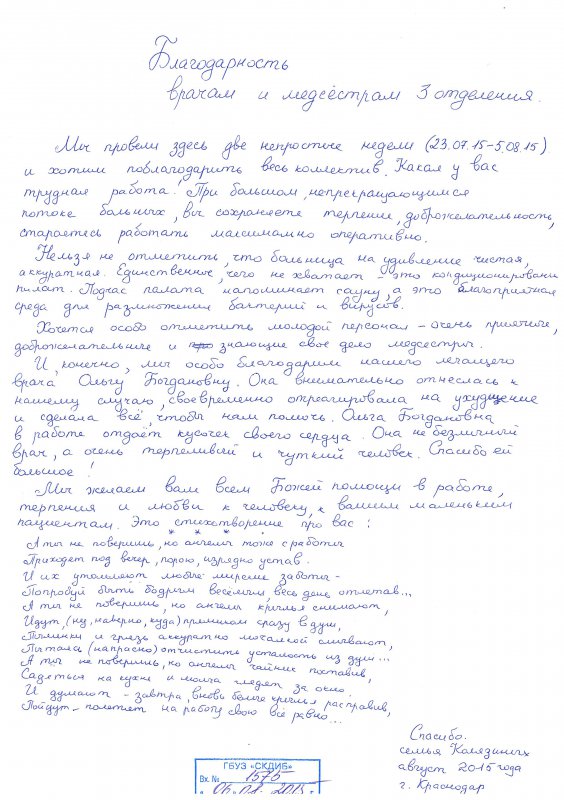 Благодарность
врачам и медсёстрам 3 отделения.
Мы провели здесь две непростые недели (23.07.15-5.08.15)
и хотим поблагодарить весь коллектив. Какая у вас
трудная работа! При большом, непрекращающимся
потоке больных, вы сохраняете терпение, доброжелательность,
стараетесь работать максимально оперативно.
Нельзя не отметить, что больница на удивление чистая,
аккуратная. Единственное, чего не хватает - это кондиционировани
палат. Подчас палата напоминает сауну, а это благоприятная
среда для размножения бактерий и вирусов.
Хочется особо отметить молодой персонал - очень приятные,
доброжелательные и знающие своё дело медсёстры.
И, конечно, мы особо благодарим нашего лечащего
врача Ольгу Богдановну. Она внимательно отнеслась к
нашему случаю, своевременно отреагировала на ухудшение
и сделала всё, чтобы нам помочь. Ольга Богдановна
в работе отдаёт кусочек своего сердца. Она не безличный
врач, а очень терпеливый и чуткий человек. Спасибо ей
большое!
Мы желаем вам всем Божей помощи в работе,
терпения и любви к человеку, к вашим маленьким
пациентам. Это стихотворение про вас:
* * *
А ты не поверишь, но ангелы тоже с работы
Приходят под вечер, порою, изрядно устав.
И их утомляют любые мирские заботы -
Попробуй быть бодрым весёлым, весь день отлетав...
А ты не поверишь, но ангелы крылья снимают,
Идут, (ну, наверно, куда) прямиком сразу в душ,
Пылинки и грязь аккуратно мочалкой смывают,
Пытаясь (напрасно) отчистить усталость из душ...
А ты не поверишь, но ангелы чайник поставив,
Садятся на кухне и молча глядят за окно.
И думают - завтра, вновь белые крылья расправив,
Пойдут - полетят на работу свою всё равно...
Спасибо.
семья Колязиных
август 2015 года
г. Краснодар
ГБУЗ «СКДИБ»
Вх. № 1575
06.08.2015 г